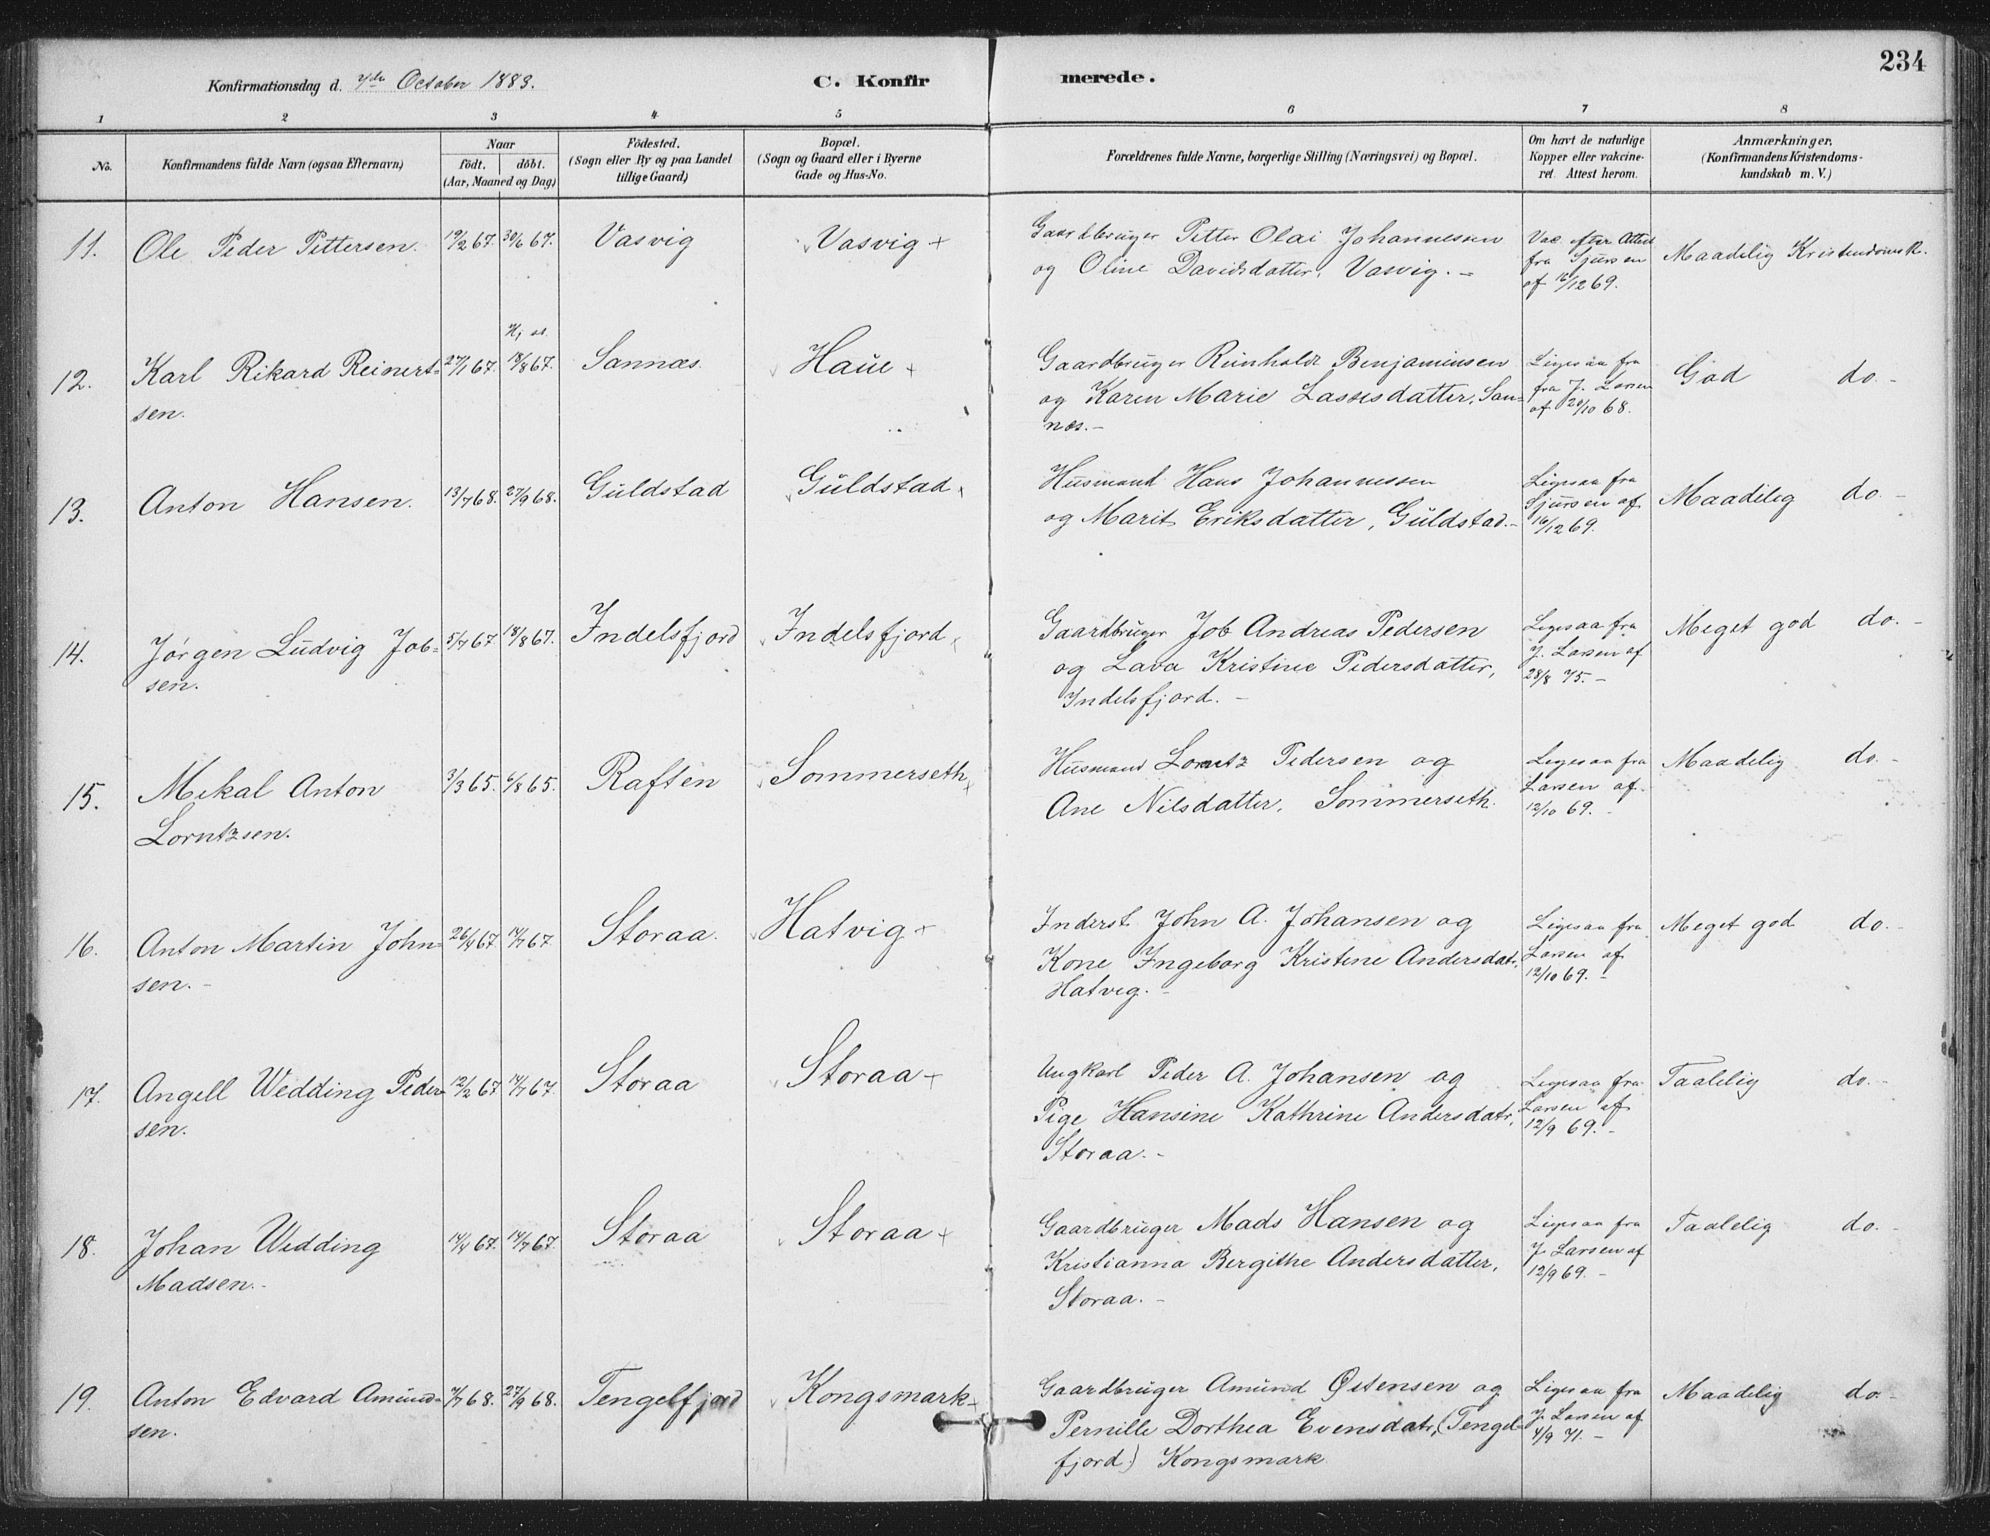 234
Konfirmationsdag d. 7de October 1883.
C. Konfirmerede.
1 2 3 4 5 6 7 8
No.
Konfirmandens fulde Navn (ogsaa Efternavn)
Naar
födt. döbt.
(Aar, Maaned og Dag)
Födested.
(Sogn eller By og paa Landet
tillige Gaard)
Bopæl.
(Sogn og Gaard eller i Byerne
Gade og Hus-No.
Forældrenes fulde Navne, borgerlige Stilling (Næringsvei) og Bopæl.
Om havt de naturlige
Kopper eller vakcine-
ret. Attest herom.
Anmærkninger.
(Konfirmandens Kristendoms-
kundskab m. V.)
11. Ole Peder Pettersen. 19/2 67. 30/6 67. Vasvig Vasvig +
Gaardbruger Petter Olai Johannessen
og Oline Davidsdatter, Vasvig. -
Vac. efter Attest
fra Sjursen
af 16/12 69.
Maadelig Kristendomsk.
12. Karl Rikard Reinert-
sen.
27/1 67. 18/8 67. Sannæs. Haue +
Gaardbruger Reinholdt Benjaminsen
og Karen Marie Lassesdatter, San-
næs. -
Ligesaa fra
fra J. Larsen
af 20/10 68.
God do. -
13. Anton Hansen. 13/7 68. 27/9 68. Guldstad Guldstad
Husmand Hans Johannessen
og Marit Eriksdatter, Guldstad. -
Ligesaa fra
Sjursen af
16/12 69.
Maadelig do. -
14. Jørgen Ludvig Job-
sen.
5/7 67 18/8 67. Indelsfjord Indelsfjord
Gaardbruger Job Andreas Pedersen
og Lava Kristine Pedersdatter,
Indelsfjord. -
Ligesaa fra
J. Larsen af
28/8 75. -
Meget god do. -
15. Mekal Anton
Lorntzsen.
3/3 65. 6/8 65. Raften Sommerseth +
Husmand Lorntz Pedersen og
Ane Nilsdatter, Sommerseth.
Ligesaa fra
Larsen af
12/10 69. -
Maadelig do. -
16. Anton Martin John-
sen. -
26/4 67. 14/7 67. Storaa. Hatvig +
Inderst. John A. Johansen og
Kone Ingeborg Kristine Andersdatr,
Hatvig. -
Ligesaa fra
Larsen af
12/10 69. -
Meget god do. -
17. Angell Wedding Peder-
sen.
12/2 67 14/7 67. Storaa Storaa +
Ungkarl Peder A. Johansen og
Pige Hansine Kathrine Andersdatr,
Storaa. -
Ligesaa fra
Larsen af
12/9 69. -
Taalelig do. -
18. Johan Wedding
Madsen. -
14/4 67. 14/7 67. Storaa Storaa +
Gaardbruger Mads Hansen og
Kristianna Bergithe Andersdatter,
Storaa. -
Ligesaa fra
J. Larsen af
12/9 69. -
Taalelig do. -
19. Anton Edvard Amund-
sen.
7/7 68. 27/9 68. Tengelfjord Kongsmark +
Gaardbruger Amund Østensen og
Pernille Dorthea Evensdatr, (Tengel-
fjord) Kongsmark
Ligesaa fra
J. Larsen af
4/9 71. -
Maadelig do. -